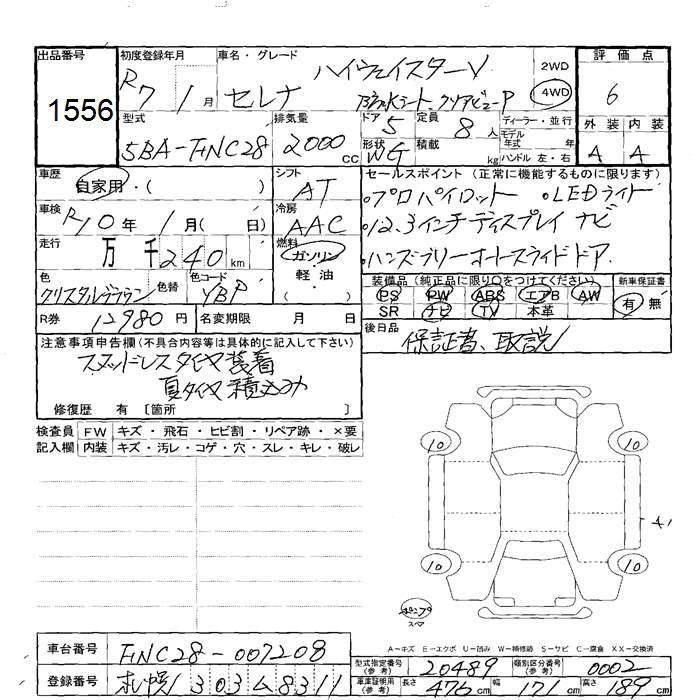 出品番号
1556
初度登録年月
R7 1月
車名・グレード
ハイウェイスターV
セレナ
防水シート、クリアビューP
2WD
4WD
評価点
6
型式
5BA-FNC28
排気量
2000 cc
ドア
5
定員
8人
形状
WG
積載
kg
ディーラー・並行
モデル
年式 年
ハンドル 左・右
外装 内装
A A
車歴
自家用・( )
シフト
AT
セールスポイント (正常に機能するものに限ります)
・プロパイロット ・LEDライト
・12.3インチディスプレイ ナビ
・ハンズフリーオートスライドドア
車検
R10年 1月( 日)
冷房
AAC
走行
万 千240km
燃料
ガソリン
軽油
( )
色
クリスタルブラウン
色替
色コード
YBP
装備品(純正品に限り○をつけてください)
PS PW ABS エアB AW
SR ナビ TV 本革
新車保証書
有 無
R券
12980円
名変期限 月 日
後日品
保証書、取説
注意事項申告欄(不具合内容等は具体的に記入して下さい)
スタッドレスタイヤ装着
夏タイヤ積込み
修復歴 有 〔箇所 〕
検査員
記入欄
FW キズ・飛石・ヒビ割・リペア跡・×要
内装 キズ・汚レ・コゲ・穴・スレ・キレ・破レ
10 10
A1
10 10
ポンプ
スペア
A－キズ E－エクボ U－凹み W－補修跡 S－サビ C－腐食 XX－交換済
車台番号
FNC28-007208
型式指定番号
(参考)
20489
類別区分番号
(参考)
0002
登録番号
札幌 303 ム 8311
車庫証明用
(参考)
長さ 476cm 幅 171cm 高さ 189cm